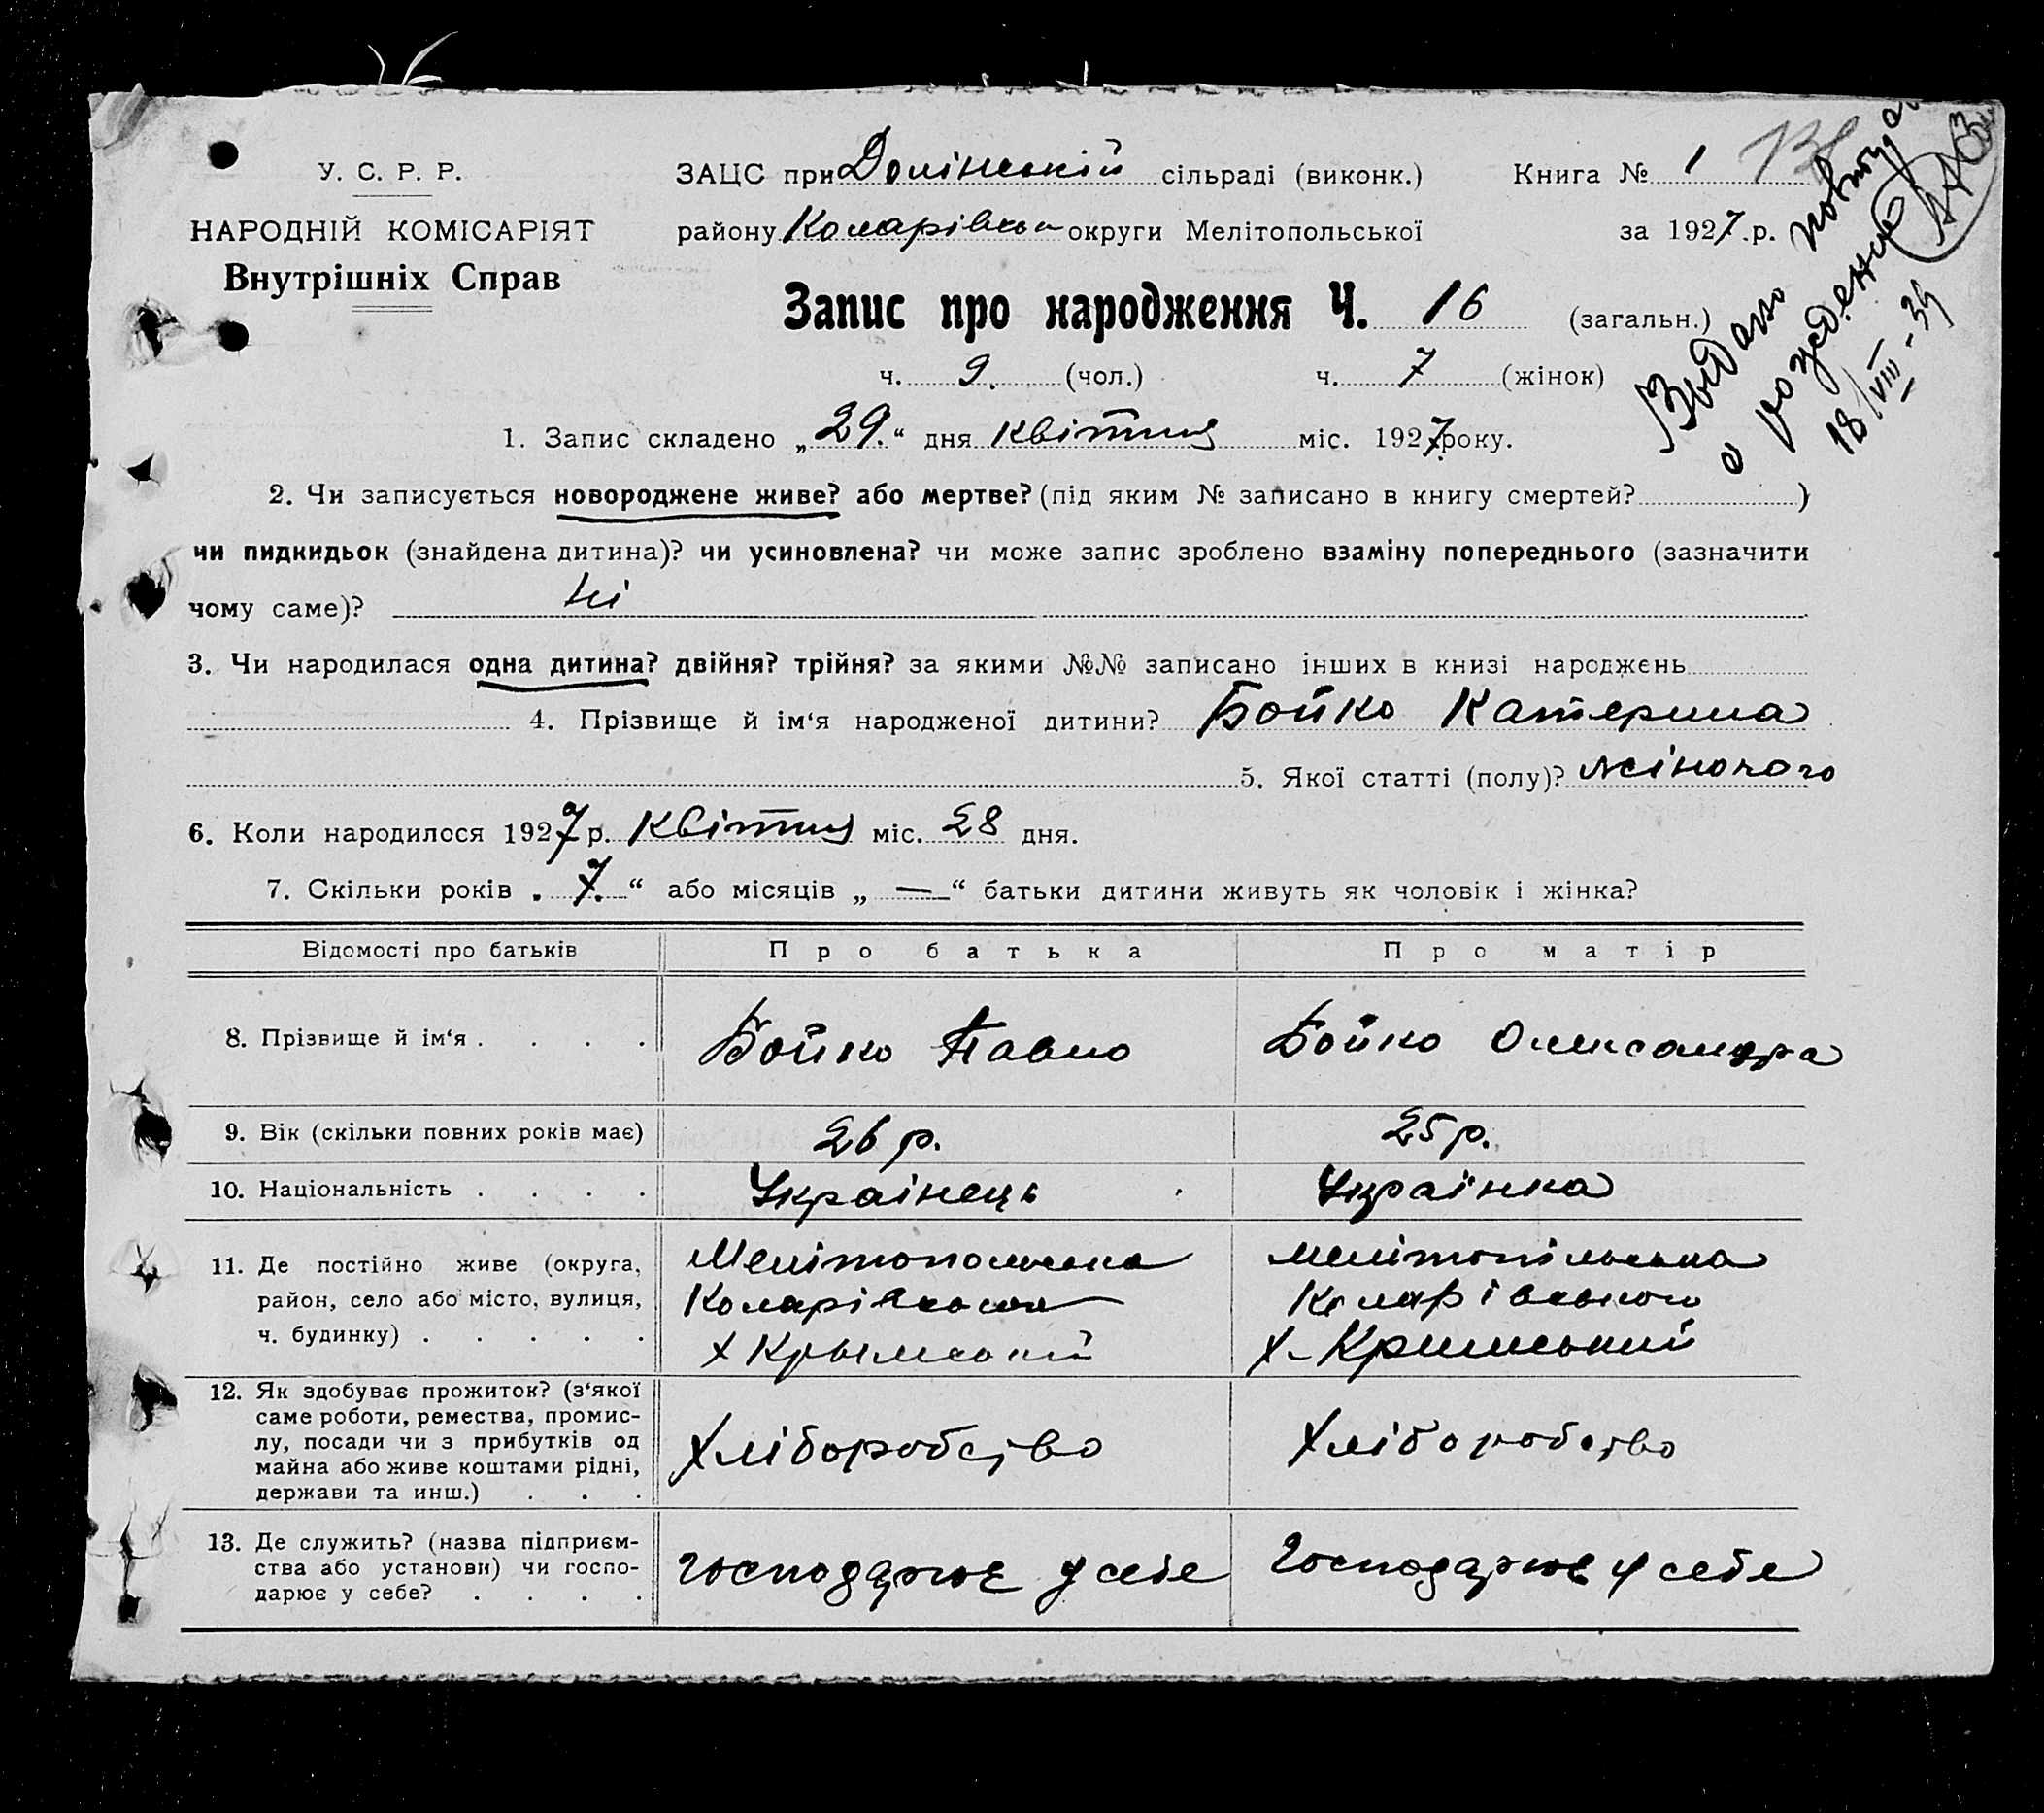 У. С. Р. Р.
НАРОДНІЙ КОМІСАРІЯТ
Внутрішніх Справ
ЗАЦС при Долінській сільраді (виконк.)
району Коларівськ округи Мелітопольської
Книга № 1
за 1927.р.
Выдано повтор
о рождении
18/VIII-39
Запис про народження Ч. 16 (загальн.)
ч. 9. (чол.) ч. 7 (жінок)
1. Запис складено „29.“ дня квітня міс. 1927 року.
2. Чи записується новороджене живе? або мертве? (під яким № записано в книгу смертей? )
чи пидкидьок (знайдена дитина)? чи усиновлена? чи може запис зроблено взаміну попереднього (зазначити
чому саме)? Ні
3. Чи народилася одна дитина? двійня? трійня? за якими №№ записано інших в книзі народжень
4. Прізвище й ім‘я народженої дитини? Бойко Катерина
5. Якої статті (полу)? жіночого
6. Коли народилося 1927 р. квітня міс. 28 дня.
7. Скільки років „7.“ або місяців „—“ батьки дитини живуть як чоловік і жінка?
Відомості про батьків Про батька Про матір
8. Прізвище й ім‘я . . . . Бойко Павло Бойко Олександра
9. Вік (скільки повних років має) 26 р. 25 р.
10. Національність . . . . Українець Українка
11. Де постійно живе (округа,
район, село або місто, вулиця,
ч. будинку) . . . . .
Мелітопольська
Коларівський
х Крымський
Мелітопільська
Коларівського
х- Кримський
12. Як здобуває прожиток? (з‘якої
саме роботи, ремества, промис-
лу, посади чи з прибутків од
майна або живе коштами рідні,
держави та инш.) . . .
Хліборобство Хліборобство
13. Де служить? (назва підприєм-
ства або установи) чи госпо-
дарює у себе? . . . .
господарює у себе господарює у себе